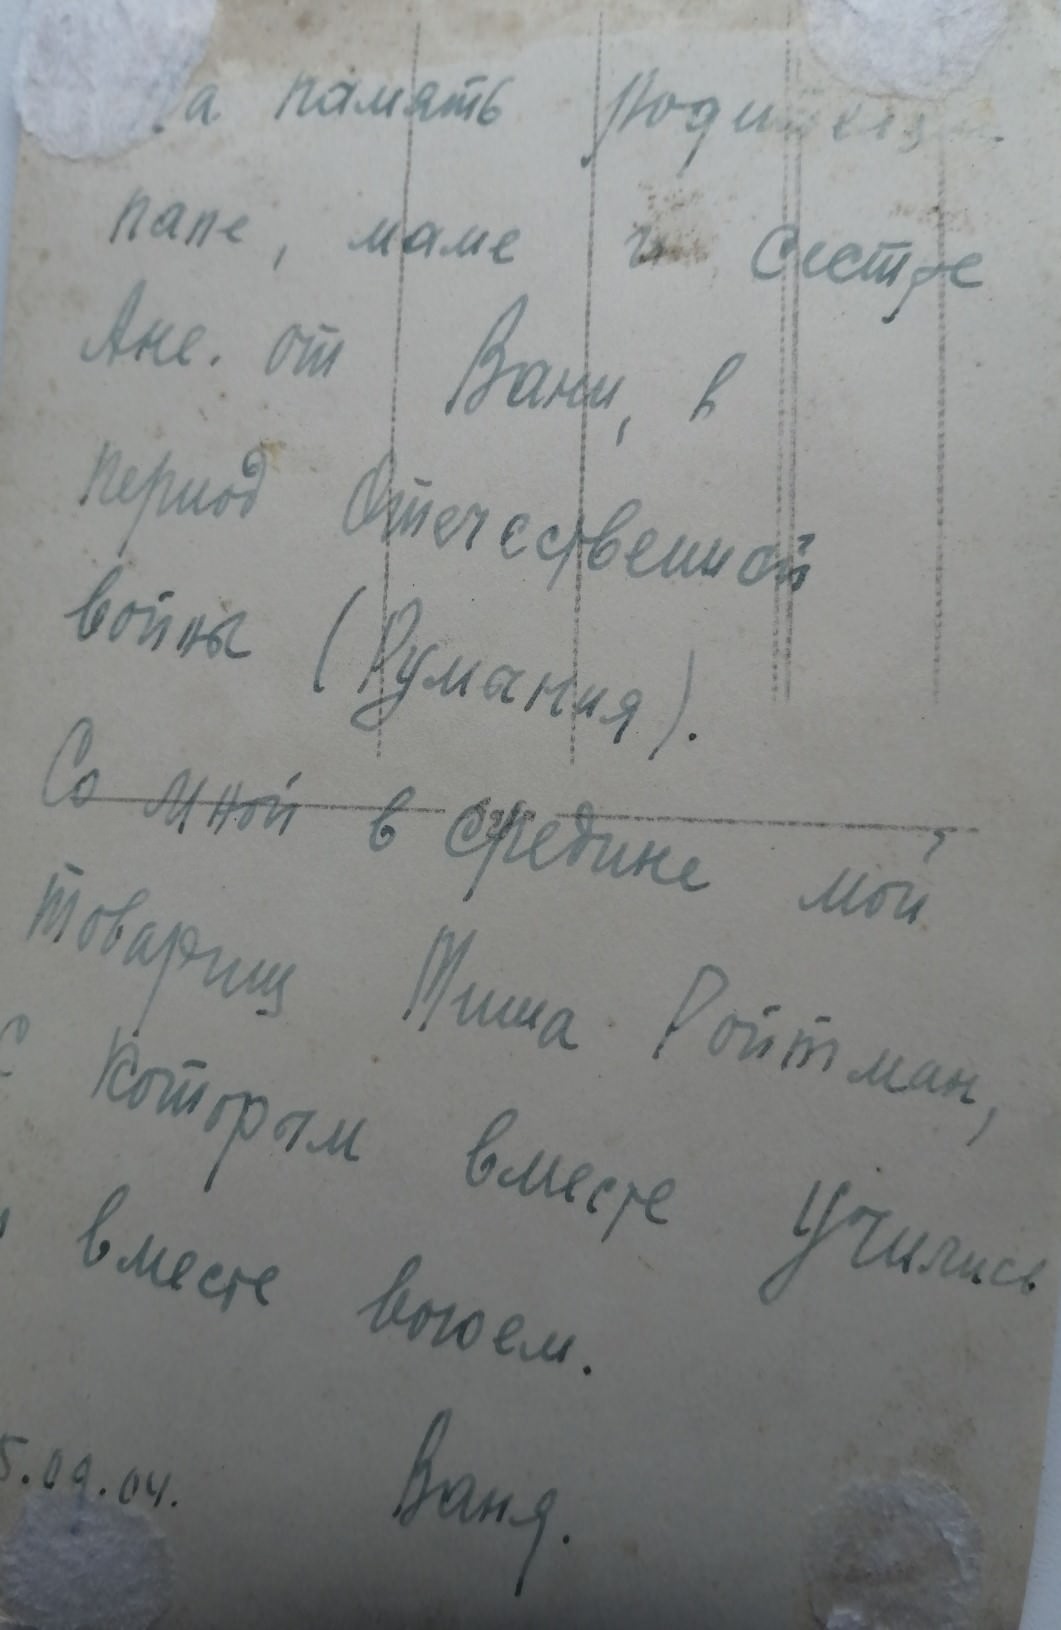 На память Родителям
папе, маме и сестре
Ане. от Вани, в
период Отечественной
войны (Румыния).
Со мной в средине мой
товарищ Миша Ройтман,
с которым вместе учились
и вместе воюем.
5.09.04. Ваня.